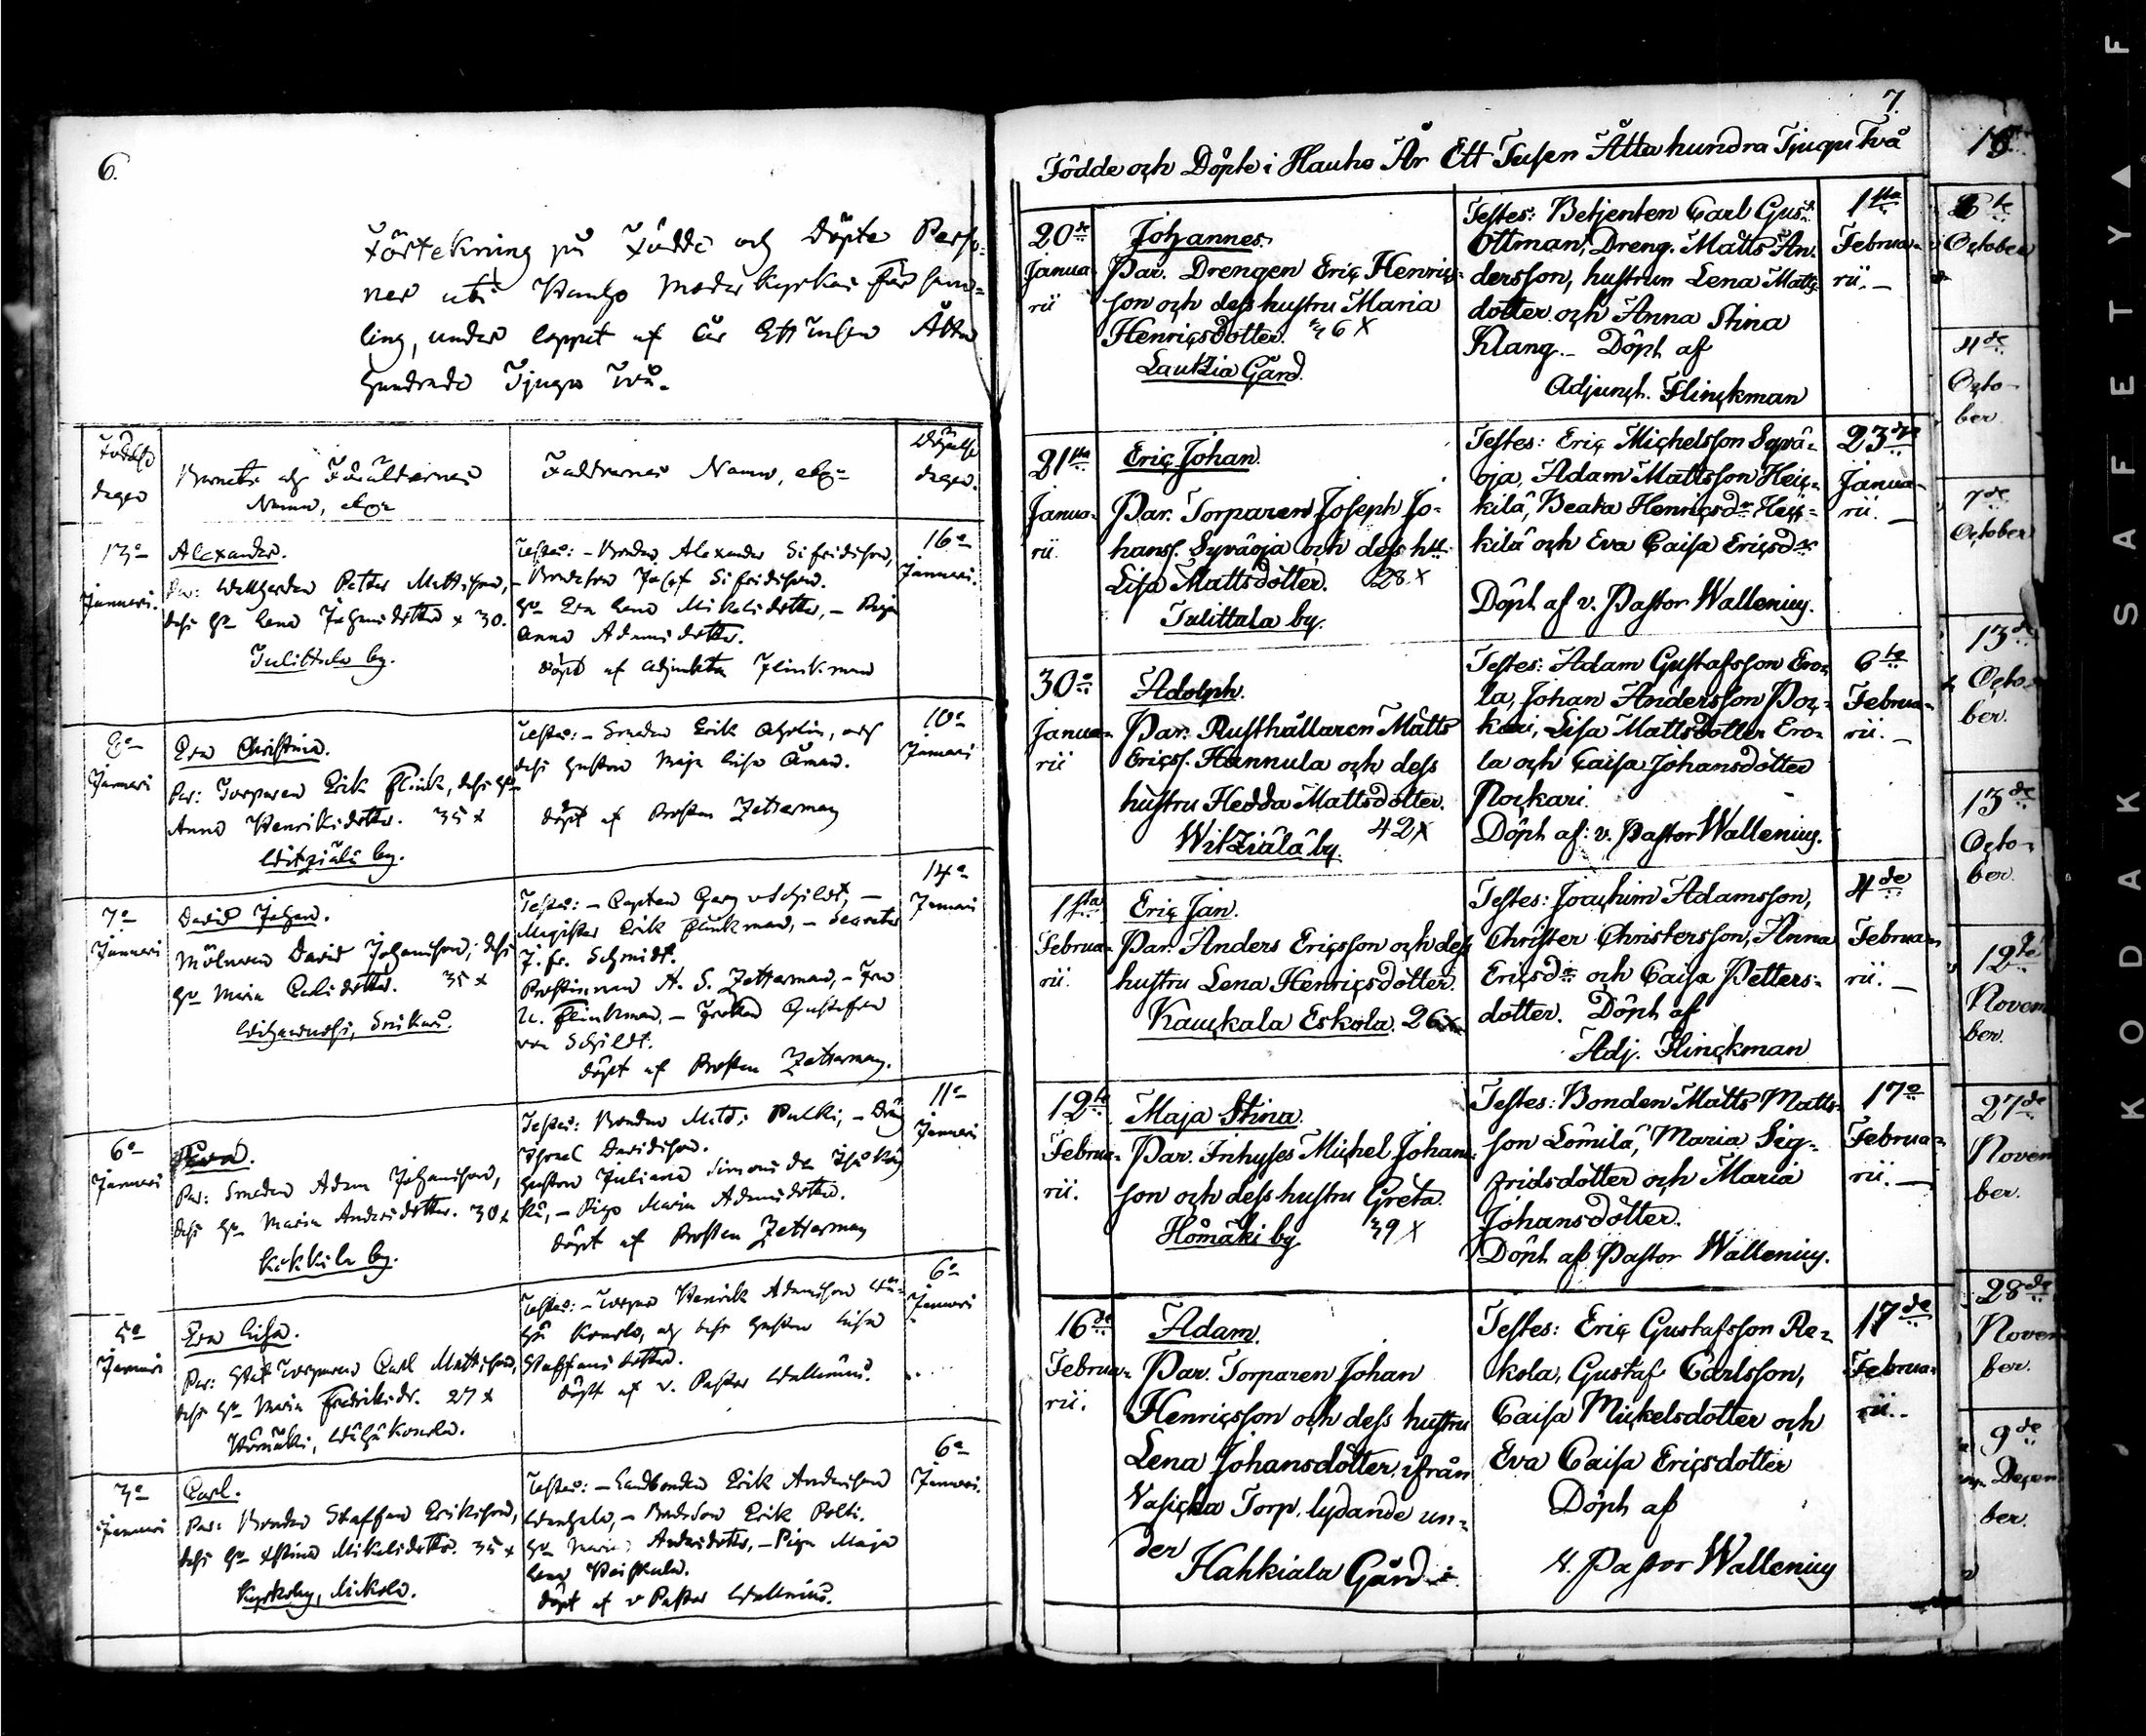 6.
Förtekning på Födde och Döpte Perso-
ner uti Hauho Moderkyrkas Försam-
ling, under loppet af år Ett Tusen Åtta
hundrade Tjugo Två.
Födelse
dagen
Barnets och Föräldrarnes
Namn, etc.
Faddrarnes Namn, etc.
Döpelse
dagen.
13e
Januari.
Alexander.
Par: Petter Mattsson,
dess Hu Lena Johansdotter x 30.
Tulittula by.
Testes: – Bonden Alexander Sifridsson,
– Bondeson Josef Sifridsson.
Hu Eva Lena Mikelsdotter, – Piga
Anna Adamsdotter.
döpt af Adjunkten Flinkman
16e
Januari.
8e
Januari
Eva Christina.
Par: Torparen Erik Flink, dess Hu
Anna Henriksdotter. 35 x
Witziälä by.
Testes: – Smeden Erik och
dess hustru Maja Lisa Öman.
döpt af Prosten Zetterman
10e
Januari
7e
Januari
David Johan.
Mölnaren David Johansson; dess
Hu Maria Carlsdotter. 35 x
Testes: – Capten Georg v Schildt, –
Magister Erik Flinkman, – Secreter
J. Fr. Schmidt.
Prostinnan H. S. Zetterman, – Fru
U. Flinkman, – Fröken Gustafva
von Schildt.
döpt af Prosten Zetterman.
14e
Januari
6e
Januari
Par: Smeden Adam Johansson,
dess Hu Maria Andersdotter. 30 x
Kokkila by.
Testes: Bonden Matts Pulkki, – Dräng
Israel Davidsson.
hustru Juliana Simonsdr
– Piga Maria Adamsdotter.
döpt af Prosten Zetterman
11e
Januari
5e
Januari
Eva Lisa.
Par: Torparen Carl Mattsson,
dess Hu Maria Fredriksdr. 27 x
Testes: – Torpar Henrik Adamsson
och dess hustru Lisa
Staffansdotter.
döpt af v. Pastor Wallenius.
6e
Januari
3e
Januari
Carl.
Par: Bonden Staffan Eriksson,
dess Hu Stina Mikelsdotter. 35 x
Kyrkoby, Nickola.
Testes: – Landbonden Erik Andersson
– Bondeson Erik Polti.
Hu Maria Andersdotter, – Piga Maja
Lena
döpt af v Pastor Wallenius.
6e
Januari.
7.
Födde och Döpte i Hauho År Ett Tusen Åtta hundra Tjugu Två
20de
Janua-
rii
Johannes
Par. Drengen Eric Henrics-
son och dess hustru Maria
Henricsdotter. 36 x
Lautzia Gård.
Testes: Betjenten Carl Gust.
Ottman, Dreng. Matts An-
dersson, hustrun Lena Matts-
dotter och Anna Stina
Klang. – Döpt af
Adjunct. Flinckman
1sta
Februa-
rii. –
21sta
Janua-
rii.
Eric Johan.
Par. Torparen Joseph Jo-
hanss. Syväoja och dess hu
Lisa Mattsdotter. 28 x
Tulittula by.
Testes: Eric Michelsson Syvä-
oja, Adam Mattsson Heic-
kilä, Beata Henricsdr Heic-
kilä och Eva Caisa Ericsdr
Döpt af v. Pastor Wallenius.
23dje
Janua-
rii. –
30e
Janua-
rii
Adolph.
Par. Rusthållaren Matts
Ericss. Hannula och dess
hustru Hedda Mattsdotter.
Witziälä by. 42 x
Testes: Adam Gustafsson Ero-
la, Johan Andersson Poc-
kari, Lisa Mattsdotter Ero-
la och Caisa Johansdotter
Pockari.
Döpt af: v. Pastor Wallenius.
6te
Februa-
rii. –
1sta
Februa-
rii.
Eric Jan.
Par. Anders Ericsson och dess
hustru Lena Henricsdotter.
Kauckala Eskola. 26 x
Testes: Joachim Adamsson,
Christer Christersson, Anna
Ericsdr och Caisa Petters-
dotter. Döpt af
Adj. Flinckman
4de
Februa-
rii. –
12te
Februa-
rii.
Maja Stina.
Par. Inhyses Michel Johans-
son och dess hustru Greta.
Homäki by. 39 x
Testes: Bonden Matts Matts-
son Lömilä, Maria Sig-
fridsdotter och Maria
Johansdotter.
Döpt af Pastor Wallenius.
17e
Februa-
rii. –
16de
Februa-
rii.
Adam.
Par. Torparen Johan
Henricsson och dess hustru
Lena Johansdotter, ifrån
Vasicka Torp, lydande un-
der
Hahkiala Gård.
Testes: Eric Gustafsson Re-
kola, Gustaf Carlsson,
Caisa Mickelsdotter och
Eva Caisa Ericsdotter
Döpt af
V. Pastor Wallenius
17de
Februa-
rii. –
October
4de
Octo-
ber.
7de
October
13de
Octo-
ber.
13de
Octo-
ber.
12te
Novem
ber.
27de
Novem
ber.
28de
Novem
ber.
9de
Decem
ber.
KODAK SAFETY ▲ F